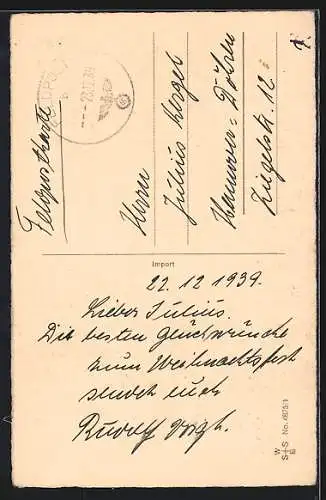 Feldpostkarte
FELDPOST
b
--- 23.12.39
Herrn
Julius
Hannover-Döhren
Ziegelstr. 12
1
Import
22.12 1939.
Lieber Julius.
Die besten Glückwünsche
zum Weihnachtsfest
sendet euch
Rudolf Voigt.
W
S+S No. 4875/1